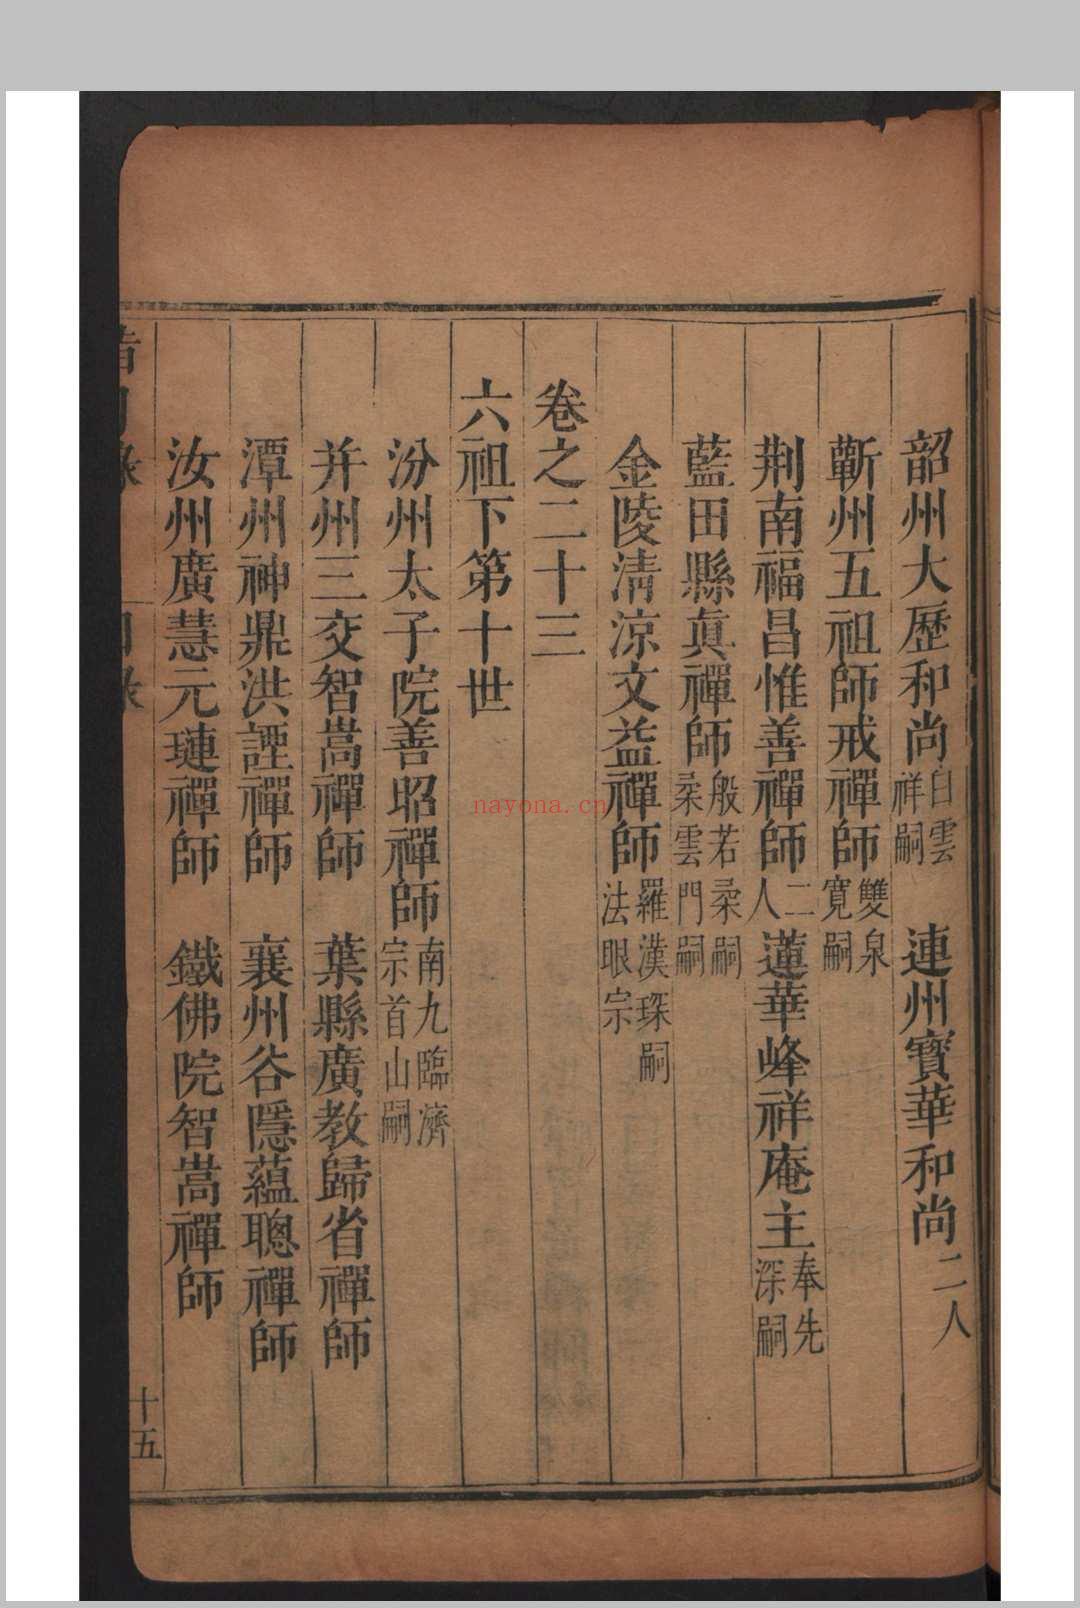 韶州大歷和尚白雲祥嗣　連州寶華和尚二人
蘄州五祖師戒禪師雙泉寬嗣
荆南福昌惟善禪師二人　蓮華峰祥庵主奉先深嗣
藍田縣真禪師般若柔嗣柔雲門嗣
金陵清涼文益禪師羅漢琛嗣法眼宗
卷之二十三
六祖下第十世
汾州太子院善昭禪師南九臨濟宗首山嗣
并州三交智嵩禪師　葉縣廣教歸省禪師
潭州神鼎洪諲禪師　襄州谷隱蘊聰禪師
汝州廣慧元璉禪師　鐵佛院智嵩禪師
目錄
十五
nayona.cn